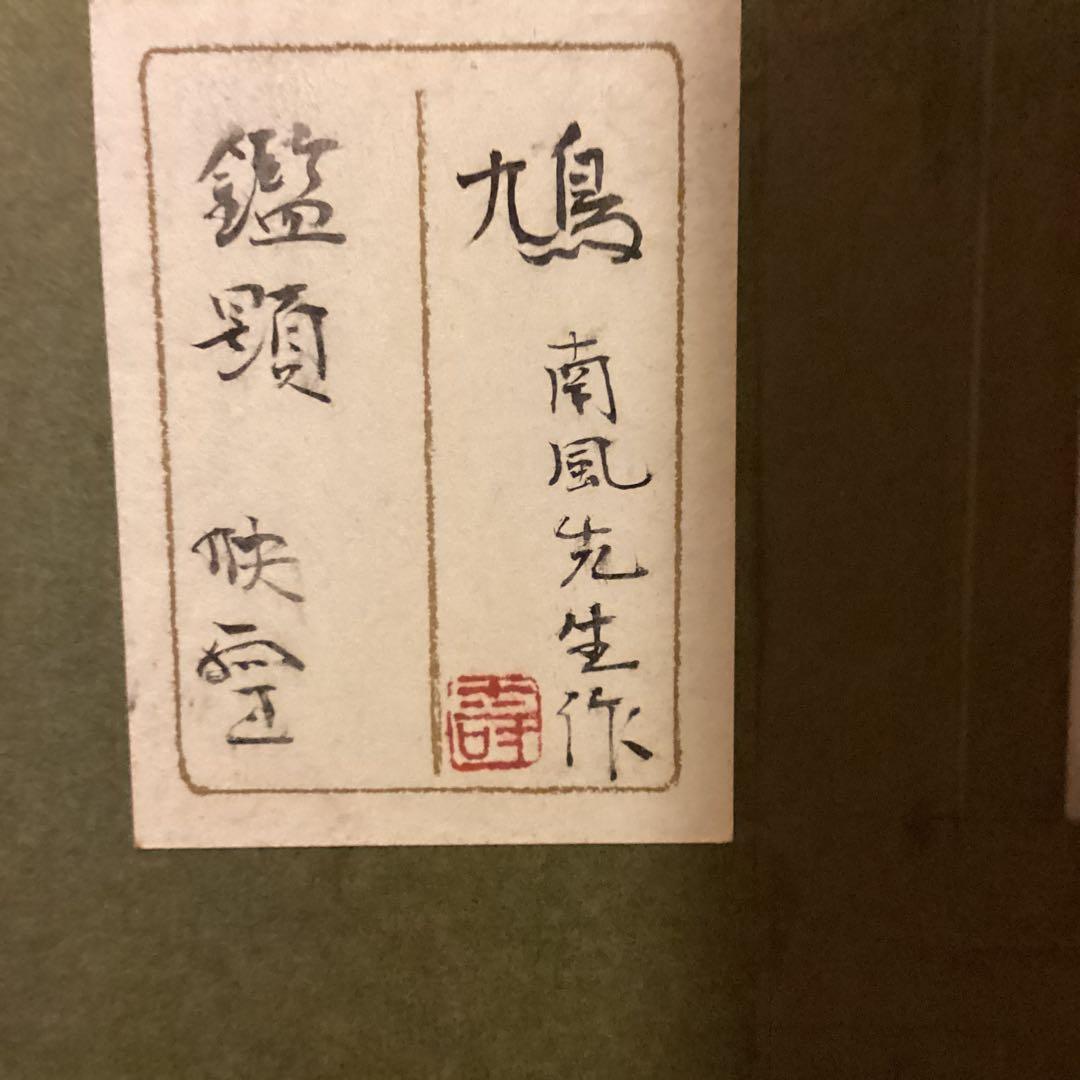 鳩 南風先生作
鑑題 映雪
壽